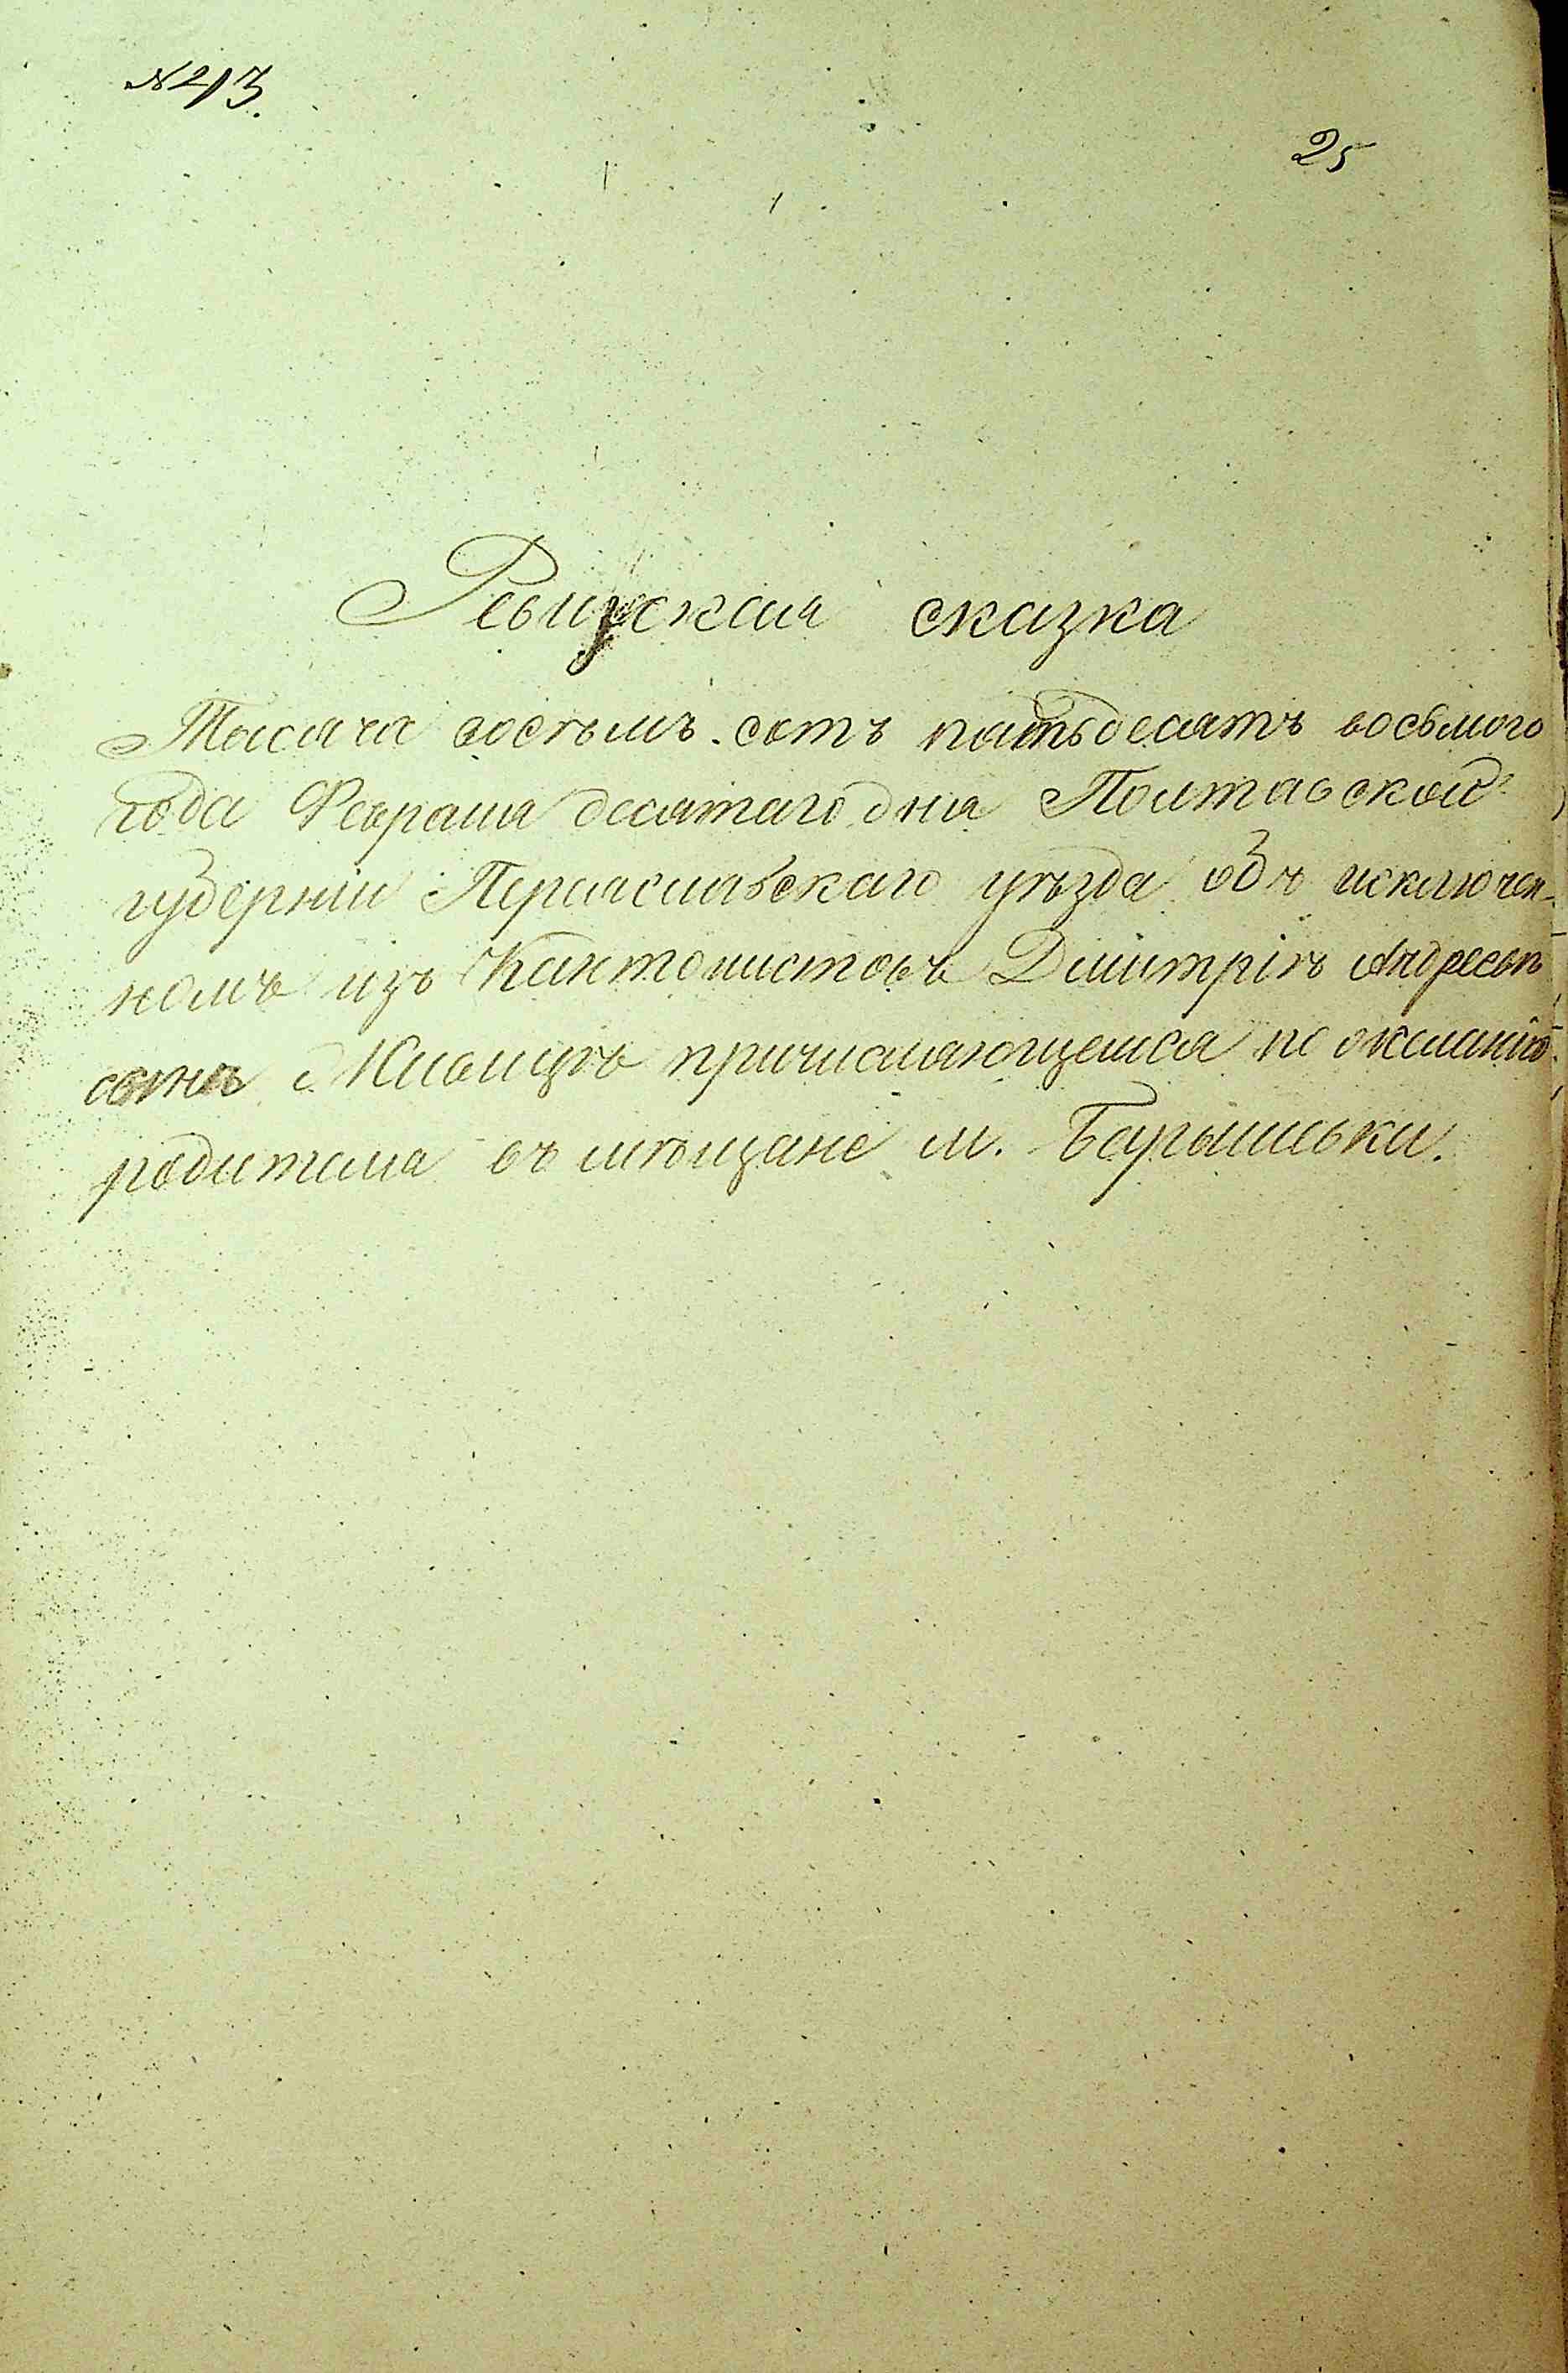 № 213.
25
Ревизская сказка
Тысяча восѣмъ сотъ пятьдесятъ восьмого
года Февраля десятаго дня Полтавской
губерніи Переяславскаго уѣзда объ исключен-
номъ изъ Кантонистовъ Дмитріѣ Андреевѣ
сынѣ причисляющемся по желанію
родителя въ мѣщане м. Барышевки.